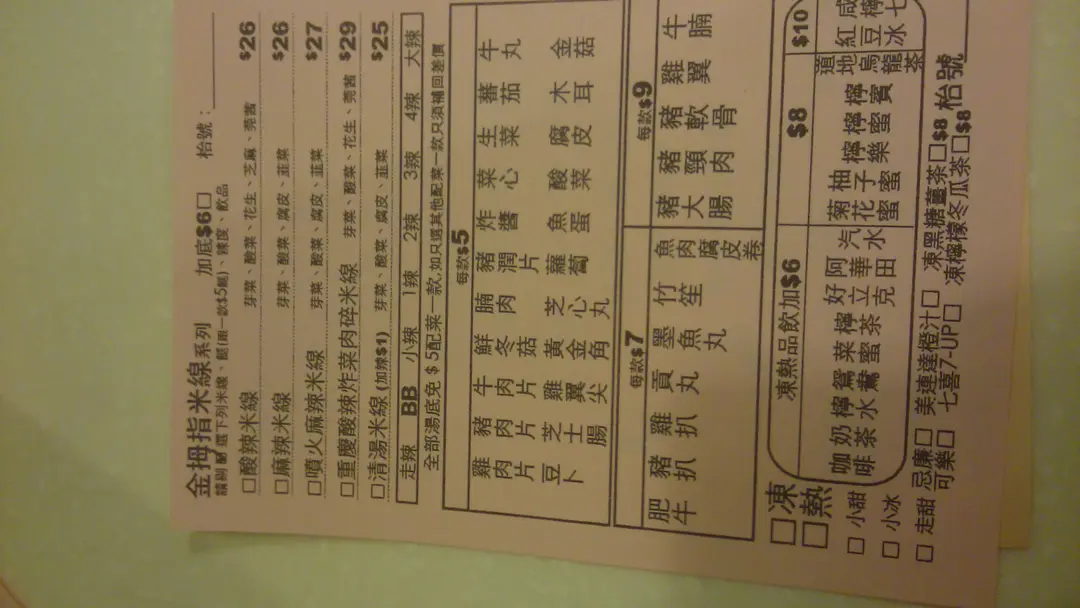 金拇指米線系列 加底$6□ 枱號：
□酸辣米線 芽菜、酸菜、花生、芝麻、莞酱 $26
□麻辣米線 芽菜、酸菜、腐皮、韮菜 $26
□噴火麻辣米線 芽菜、酸菜、腐皮、韮菜 $27
□重慶酸辣炸菜肉碎米線 芽菜、酸菜、花生、莞酱 $29
□清湯米線(加辣$1) 芽菜、酸菜、腐皮、韮菜 $25
走辣 BB 小辣 1辣 2辣 3辣 4辣 大辣
全部湯底免$5配菜一款,如只選其他配菜一款只須補回差價
每款$5
雞肉片 豬肉片 牛肉片 鮮冬菇 腩肉 豬潤片 炸醬 菜心 生菜 蕃茄 牛丸
豆卜 芝士腸 雞翼尖 黃金角 芝心丸 蘿蔔 魚蛋 酸菜 腐皮 木耳 金菇
每款$7 每款$9
肥牛 豬扒 雞扒 貢丸 墨魚丸 竹笙 魚肉腐皮卷 豬大腸 豬頸肉 豬軟骨 雞翼 牛腩
□凍 □熱
凍熱品飲加$6 $8 $10
咖啡 奶茶 檸水 鴛鴦 菜蜜 檸茶 好立克 阿華田 汽水 菊花蜜 柚子蜜 檸樂 檸蜜 檸賓 道地烏龍茶 紅豆冰
□小甜
□小冰
□走甜 忌廉□ 美連達橙汁□ 凍黑糖薑茶□$8 枱號
可樂□ 七喜7-UP□ 凍檸檬冬瓜茶□$8